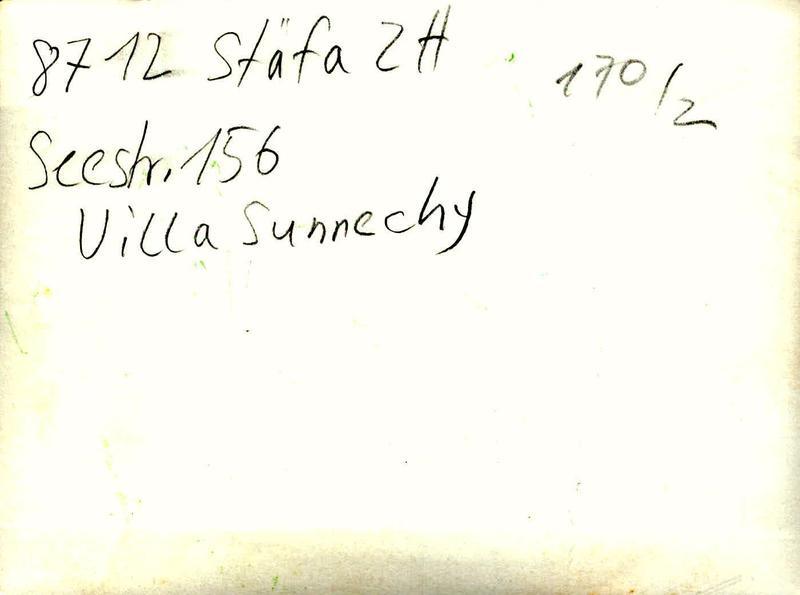 8712 Stäfa ZH
170/2
Seestr. 156
Villa Sunnechy